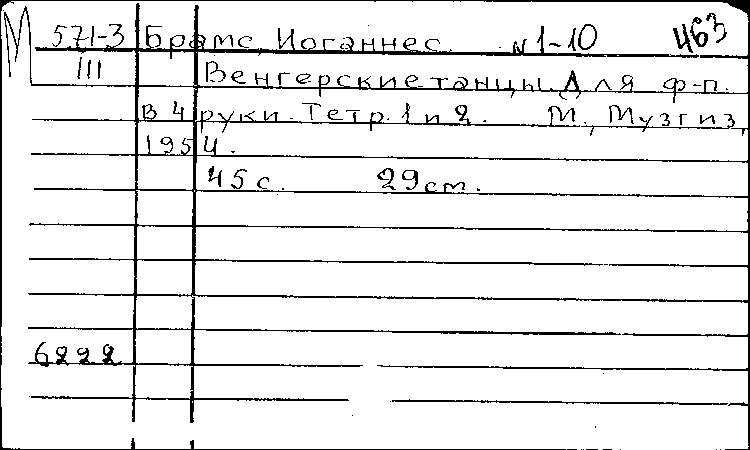 М 571-3 Брамс, Иоганнес. N 1-10 463
III Венгерские танцы. Для ф-п.
в 4 руки. Тетр. 1 и 2. М., Музгиз,
1954.
45 с. 29 см.
6222